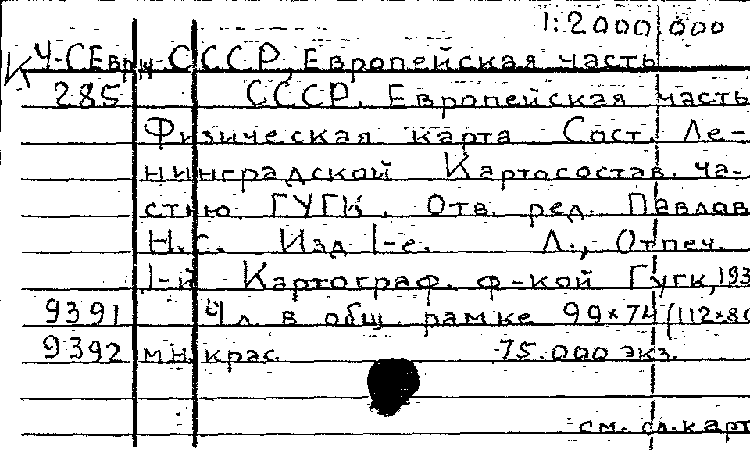 1:2000000
Ч-СЕвр.ч СССР, Европейская часть
285 СССР. Европейская часть
Физическая карта Сост. Ле-
нинградской Картосостав. ча-
стью ГУГК. Отв. ред. Павлов
Н.С. Изд 1-е. Л., Отпеч.
1-й Картограф. ф-кой Гугк, 193
9391 4 л. в общ. рамке 99×74 (112×80
9392 мн. крас. 75.000 экз.
см. сл. карт